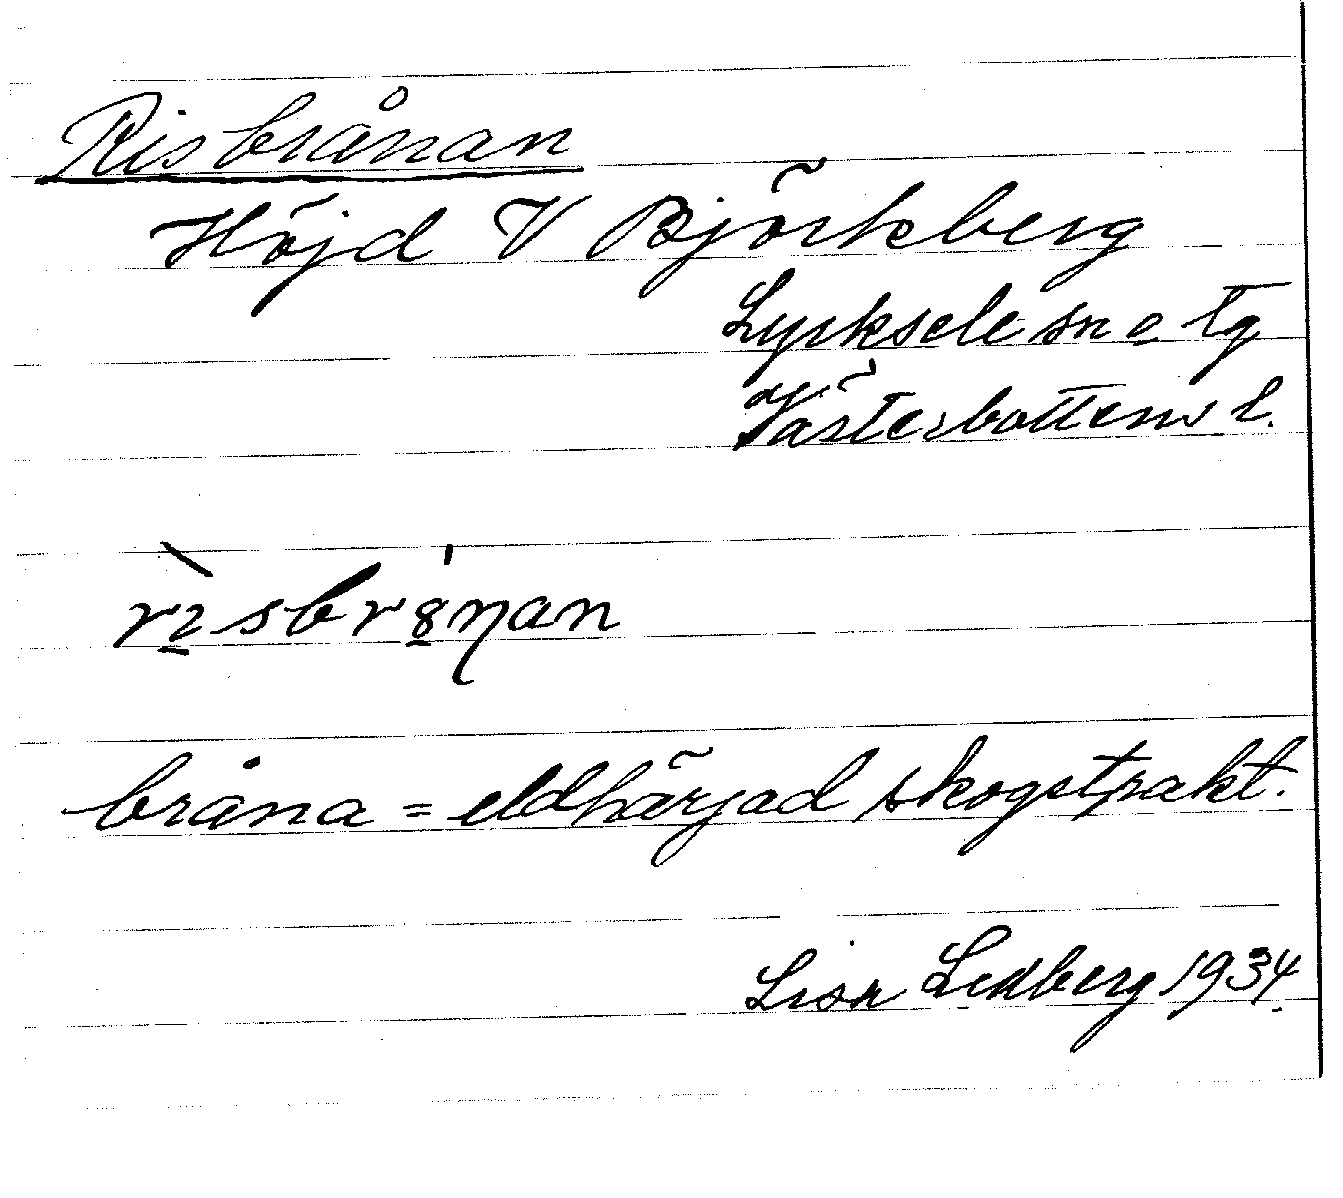 Risbrånan
Höjd V Björkberg
Lycksele sn o tg
Västerbottens l.
bråna = eldhärjad skogstrakt.
Lidberg 1934.